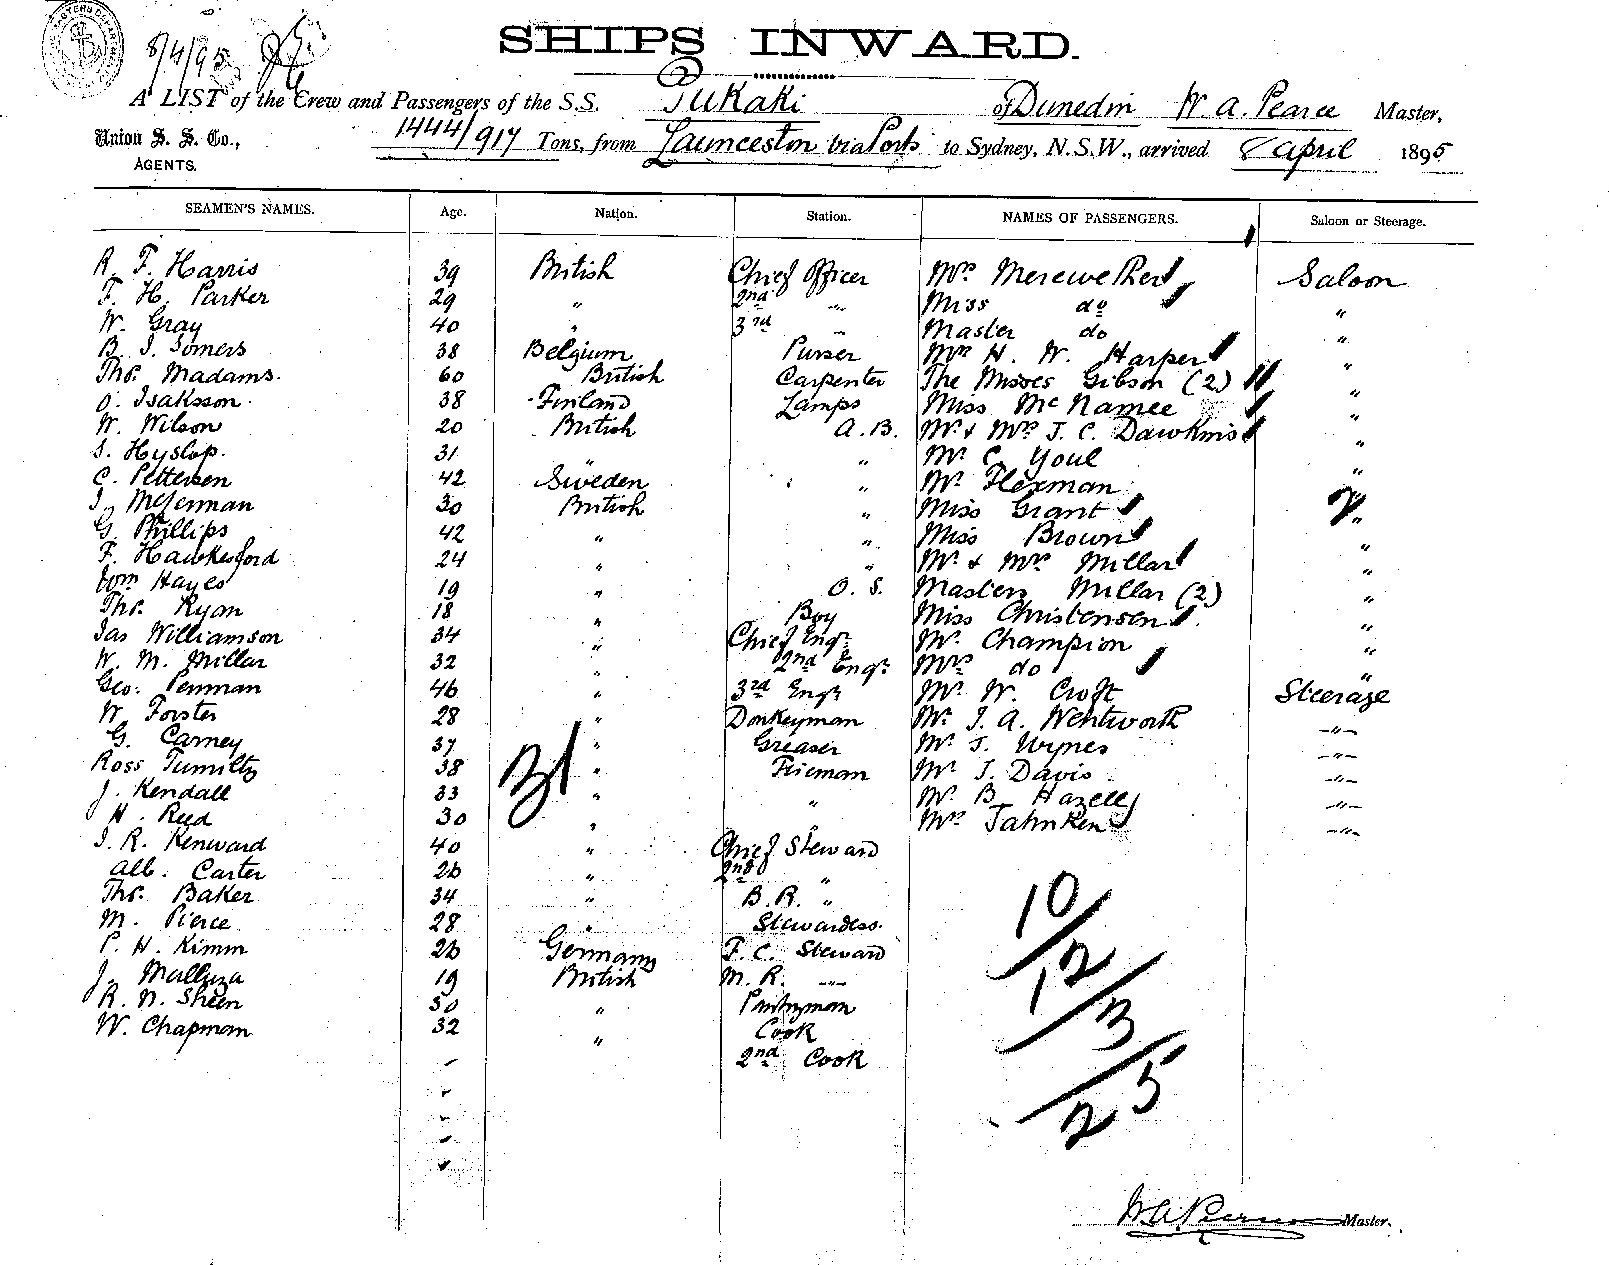 8/4/95
SHIPS INWARD.
A LIST of the Crew and Passengers of the S.S. Pukaki of Dunedin W. A. Pearce Master,
Union S. S. Co., 1444/917 Tons, from Launceston via Ports to Sydney, N.S.W., arrived 8 April 1895
AGENTS.
SEAMEN'S NAMES. Age. Nation. Station. NAMES OF PASSENGERS. Saloon or Steerage.
R. F. Harris 39 British Chief Officer Mrs Merewether Saloon
F. H. Parker 29 " 2nd " Miss do "
W. Gray 40 " 3rd " Master do "
B. J. Somers 38 Belgium Purser Mrs H. W. Harper "
Thos. Madams. 60 British Carpenter The Misses Gibson (2) "
O. Isaksson. 38 Finland Lamps Miss McNamee "
W. Wilson 20 British A.B. Mr & Mrs J. C. Dawkins "
S. Hyslop. 31 " " Mr C. Youl "
C. Pettersen 42 Sweden " Mr Flexman "
30 British " Miss Grant "
G. Phillips 42 " " Miss Brown "
F. Hawkesford 24 " " Mr & Mrs Millar "
Wm Hayes 19 " O. S. Masters Millar (2) "
Thos. Ryan 18 " Boy Miss Christensen "
Jas Williamson 34 " Chief Engr. Mr. Champion "
W. M. Millar 32 " 2nd Engr. Mrs do "
Geo. Penman 46 " 3rd Engr Mr. W. Croft Steerage
W. Forster 28 " Donkeyman Mr. J. A. Wentworth "
G. Carney 37 " Greaser Mr J. Wynes "
Ross Tumilty 38 " Fireman Mr J. Davis "
J. Kendall 33 " " Mr B. Hazell "
H. Reed 30 " " Mrs Jahnken "
J. R. Kenward 40 " Chief Steward
Alb. Carter 26 " 2nd "
Thos. Baker 34 " B.R. "
M. Pierce 28 " Stewardess.
P. H. Kimm 26 Germany F. C. Steward
J. 19 British M. R. "
R. N. Sheen 50 " Pantryman
W. Chapman 32 " Cook
2nd Cook
31
10/12/3/25
2
W A Pearce Master.